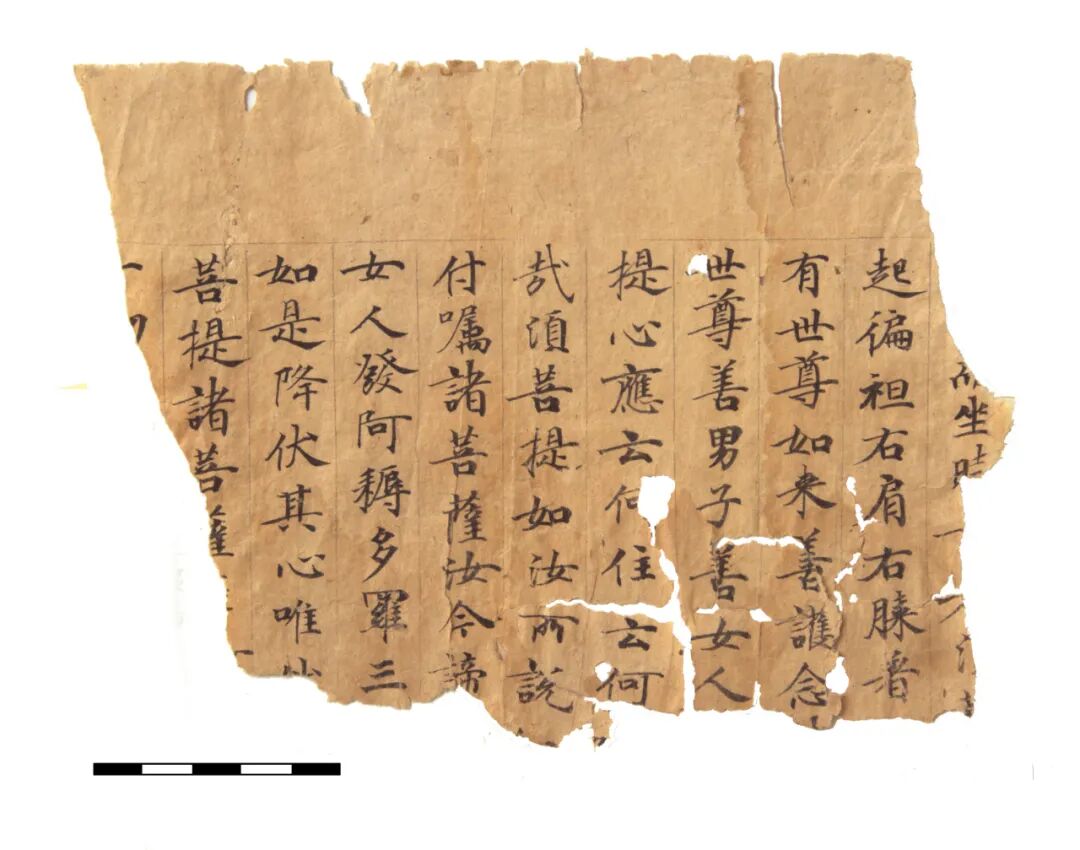 而坐時
起徧袒右肩右膝著
有世尊如来善護念
世尊善男子善女人
提心應云何住云何
哉須菩提如汝所說
付囑諸菩薩汝今諦
女人發阿耨多羅三
如是降伏其心唯
菩提諸菩薩